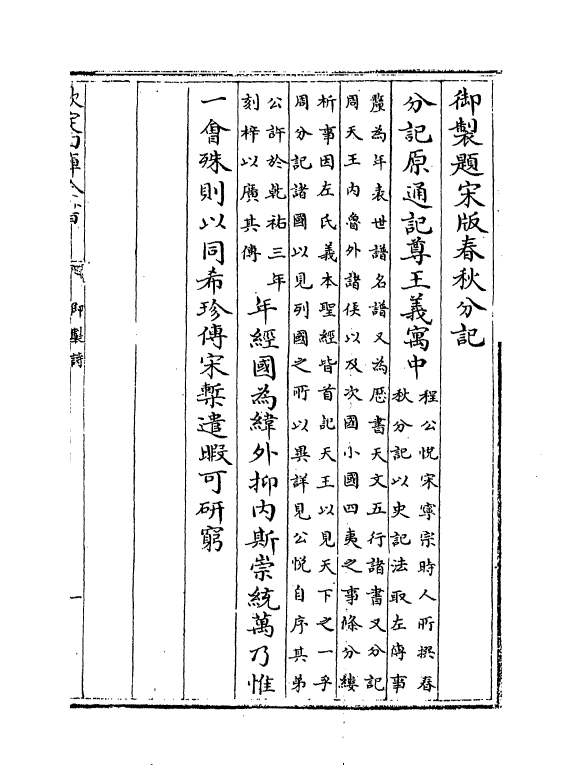 御製題宋版春秋分記
分記原通記尊王義寓中
程公悅宋寧宗時人所撰春
秋分記以史記法取左傳事
釐為年表世譜名譜又為厯書天文五行諸書又分記
周天王内魯外諸侯以及次國小國四夷之事條分縷
析事因左氏義本聖經皆首記天王以見天下之一乎
周分記諸國以見列國之所以異詳見公悅自序其弟
公許於乾祐三年
刻梓以廣其傳
年經國為緯外抑内斯崇統萬乃惟
一會殊則以同希珍傳宋槧遣暇可研窮
御製詩
一